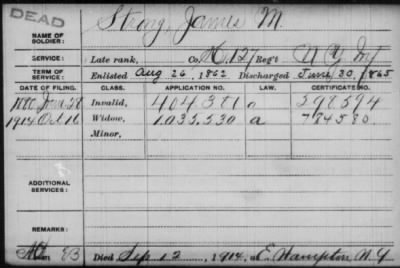 DEAD
NAME OF SOLDIER: Strong, James M.
SERVICE: Late rank, Co. K, 127 Reg't N Y Inf
TERM OF SERVICE: Enlisted Aug 26, 1862 Discharged June 30, 1865
DATE OF FILING. CLASS. APPLICATION NO. LAW. CERTIFICATE NO.
1880 Jun 28 Invalid, 404,381 398,594
1914 Oct 16 Widow, 1.035.530 a 784580
Minor,
ADDITIONAL SERVICES:
REMARKS:
Died Sep 12, 1914, at E. Hampton N.Y